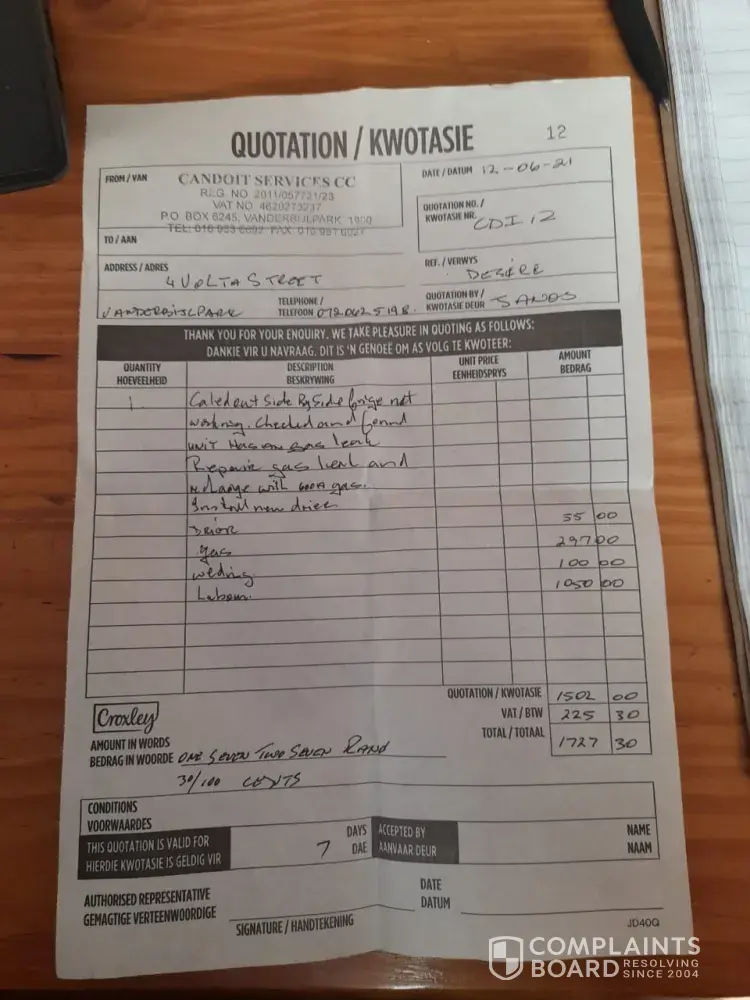 QUOTATION / KWOTASIE 12
FROM / VAN
CANDOIT SERVICES CC
REG. NO. 2011/057721/23
VAT NO. 4620273237
P.O. BOX 6245, VANDERBIJLPARK, 1900
TEL: 016 933 FAX: 016
DATE / DATUM 12-06-21
QUOTATION NO. /
KWOTASIE NR. CDI 12
TO / AAN
ADDRESS / ADRES
4 VOLTA STREET
REF. / VERWYS
DESIRE
VANDERBIJLPARK
TELEPHONE /
TELEFOON 072 062 5198.
QUOTATION BY /
KWOTASIE DEUR
THANK YOU FOR YOUR ENQUIRY. WE TAKE PLEASURE IN QUOTING AS FOLLOWS:
DANKIE VIR U NAVRAAG. DIT IS 'N GENOEË OM AS VOLG TE KWOTEER:
QUANTITY
HOEVEELHEID
DESCRIPTION
BESKRYWING
UNIT PRICE
EENHEIDSPRYS
AMOUNT
BEDRAG
1 Caled out Side By Side frige not
working. Checked and found
UNIT HAS an gas leak
Repair gas leak and
with 600A gas.
Install new drier
55 00
gas 297 00
welding 100 00
Labour. 1050 00
QUOTATION / KWOTASIE 1502 00
VAT / BTW 225 30
TOTAL / TOTAAL 1727 30
Croxley
AMOUNT IN WORDS
BEDRAG IN WOORDE ONE SEVEN TWO SEVEN RAND
30/100 CENTS
CONDITIONS
VOORWAARDES
THIS QUOTATION IS VALID FOR
HIERDIE KWOTASIE IS GELDIG VIR
7
DAYS
DAE
ACCEPTED BY
AANVAAR DEUR
NAME
NAAM
AUTHORISED REPRESENTATIVE
GEMAGTIGE VERTEENWOORDIGE
SIGNATURE / HANDTEKENING
DATE
DATUM
JD40Q
COMPLAINTS
BOARD RESOLVING
SINCE 2004